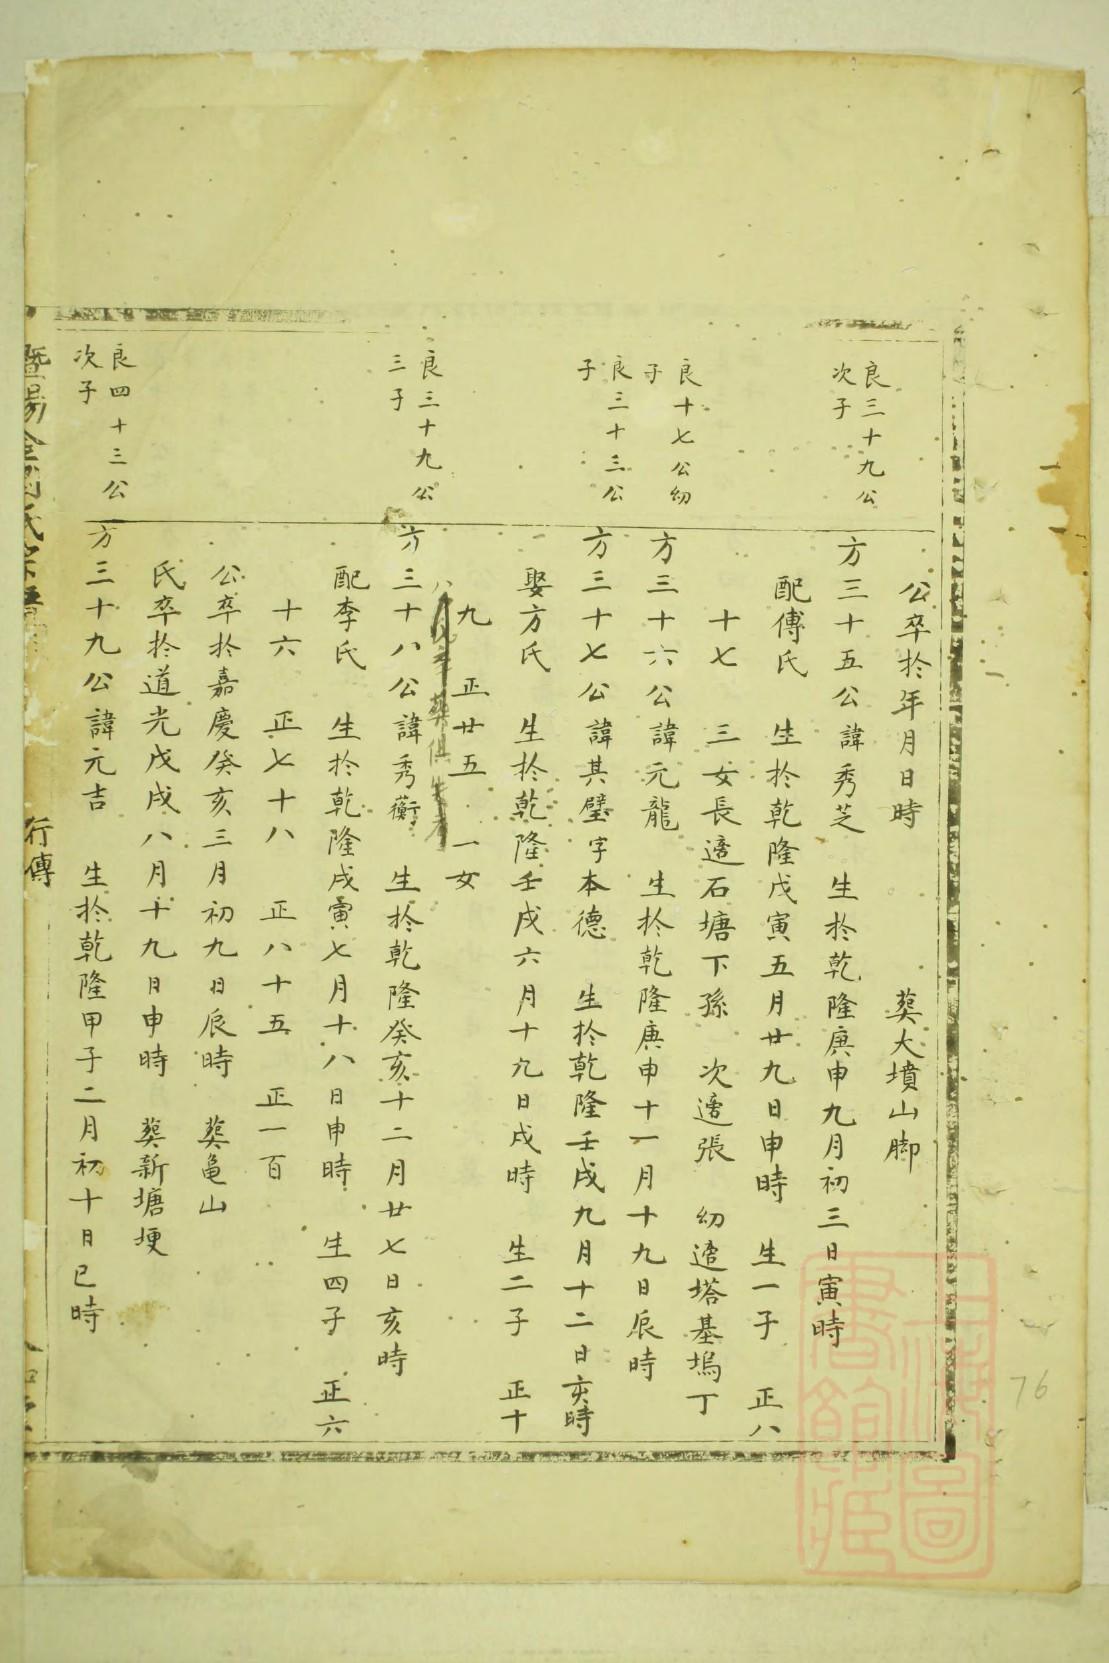 公卒於年月日時 葬大墳山脚
良三十九公
次子
方三十五公諱秀芝 生於乾隆庚申九月初三日寅時
配傅氏 生於乾隆戊寅五月廿九日申時 生一子 正八
十七 三女長適石塘下孫 次適張 幼適塔基塢丁
良十七公幼
子
方三十六公諱元龍 生於乾隆庚申十一月十九日辰時
良三十三公
子
方三十七公諱其璧字本德 生於乾隆壬戌九月十二日亥時
娶方氏 生於乾隆壬戌六月十九日戌時 生二子 正十
九 正廿五 一女
良三十九公
三子
方三十八公諱秀蘅 生於乾隆癸亥十二月廿七日亥時
配李氏 生於乾隆戊寅七月十八日申時 生四子 正六
十六 正七十八 正八十五 正一百
公卒於嘉慶癸亥三月初九日辰時 葬龜山
氏卒於道光戊戌八月十九日申時 葬新塘埂
良四十三公
次子
方三十九公諱元吉 生於乾隆甲子二月初十日巳時
暨陽 氏宗譜
行傳
上海圖
書館藏
76